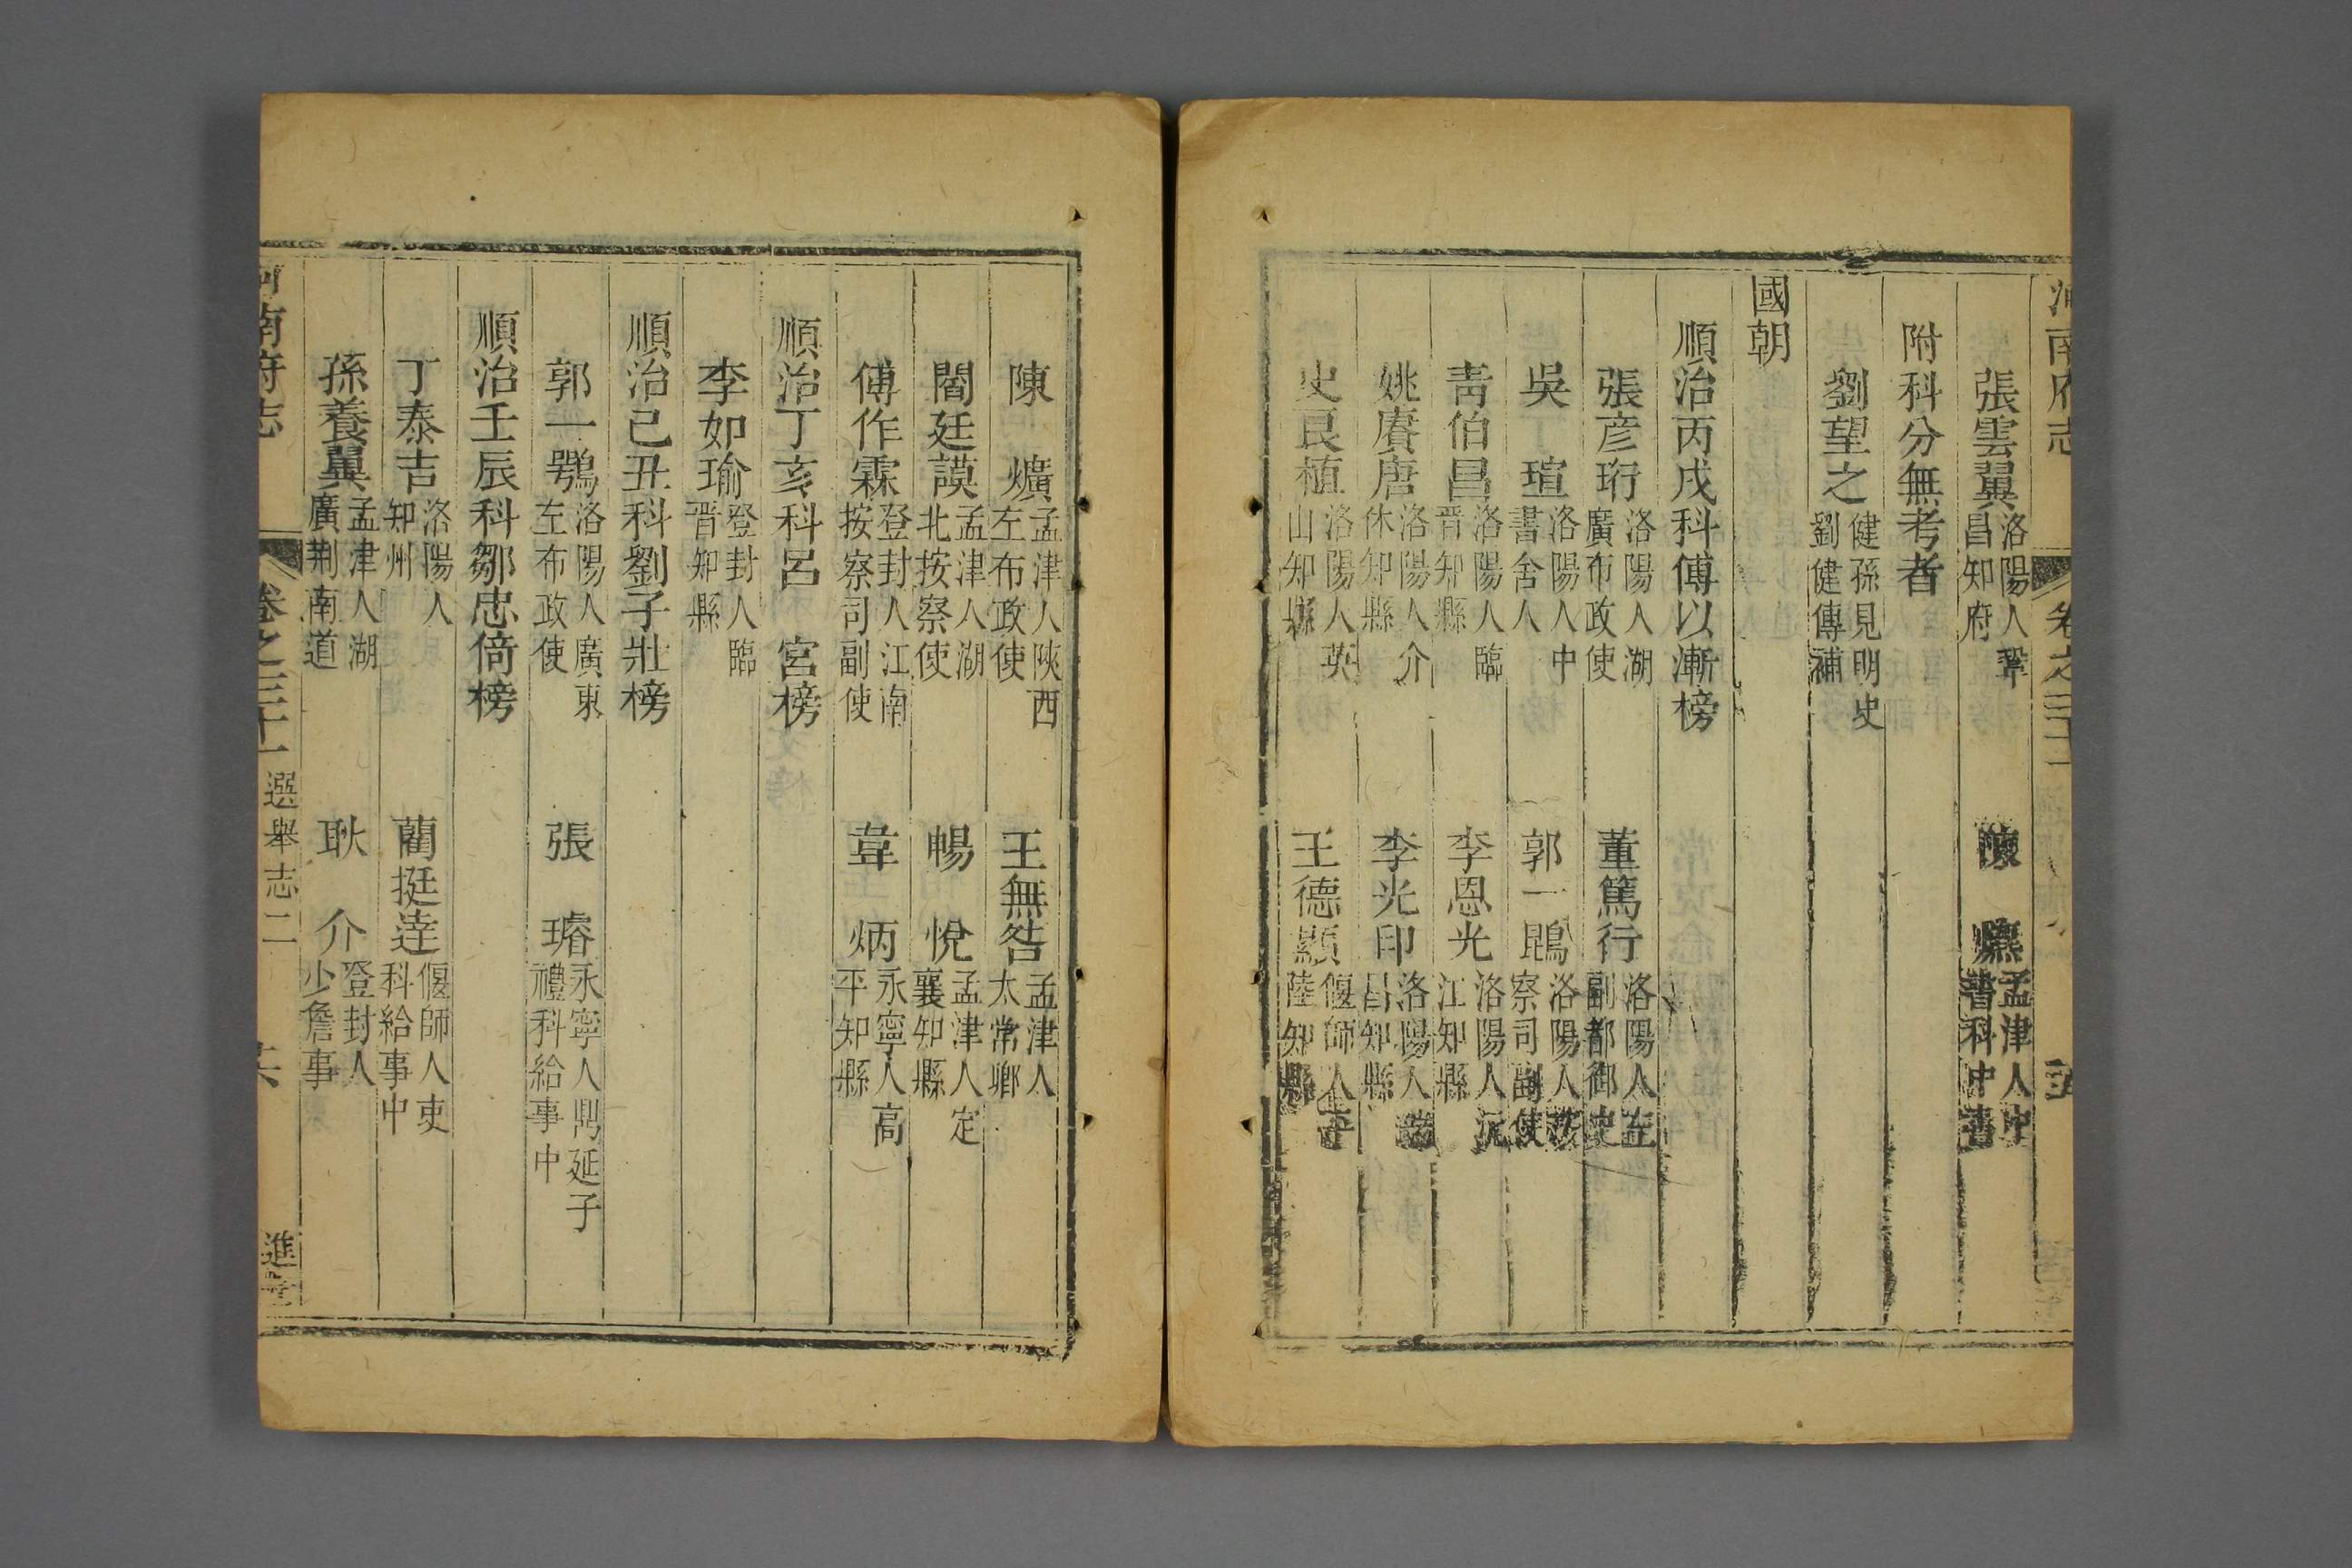 河南府志 卷之三十一
張雲翼 洛陽人鞏昌知府 陳爌 孟津人中書科中書
附科分無考者
劉望之 健孫見明史劉健傳補
國朝
順治丙戌科傅以漸榜
張彥珩 洛陽人湖廣布政使 董篤行 洛陽人左副都御史
吳瑄 洛陽人中書舍人 郭一鶚 洛陽人按察司副使
靑伯昌 洛陽人臨晋知縣 李恩光 洛陽人沅江知縣
姚賡唐 洛陽人介休知縣 李光印 洛陽人昌知縣
史良植 洛陽人英山知縣 王德顯 偃師人平陸知縣
陳爌 孟津人陝西左布政使 王無咎 孟津人太常卿
閻廷謨 孟津人湖北按察使 暢悅 孟津人定襄知縣
傅作霖 登封人江南按察司副使 韋炳 永寧人高平知縣
順治丁亥科呂宮榜
李如瑜 登封人臨晋知縣
順治己丑科劉子壯榜
郭一鶚 洛陽人廣東左布政使 張璿 永寧人鼎延子禮科給事中
順治壬辰科鄒忠倚榜
丁泰吉 洛陽人知州 藺挺達 偃師人吏科給事中
孫養翼 孟津人湖廣荆南道 耿介 登封人少詹事
河南府志 卷之三十一 選舉志二 六 進士